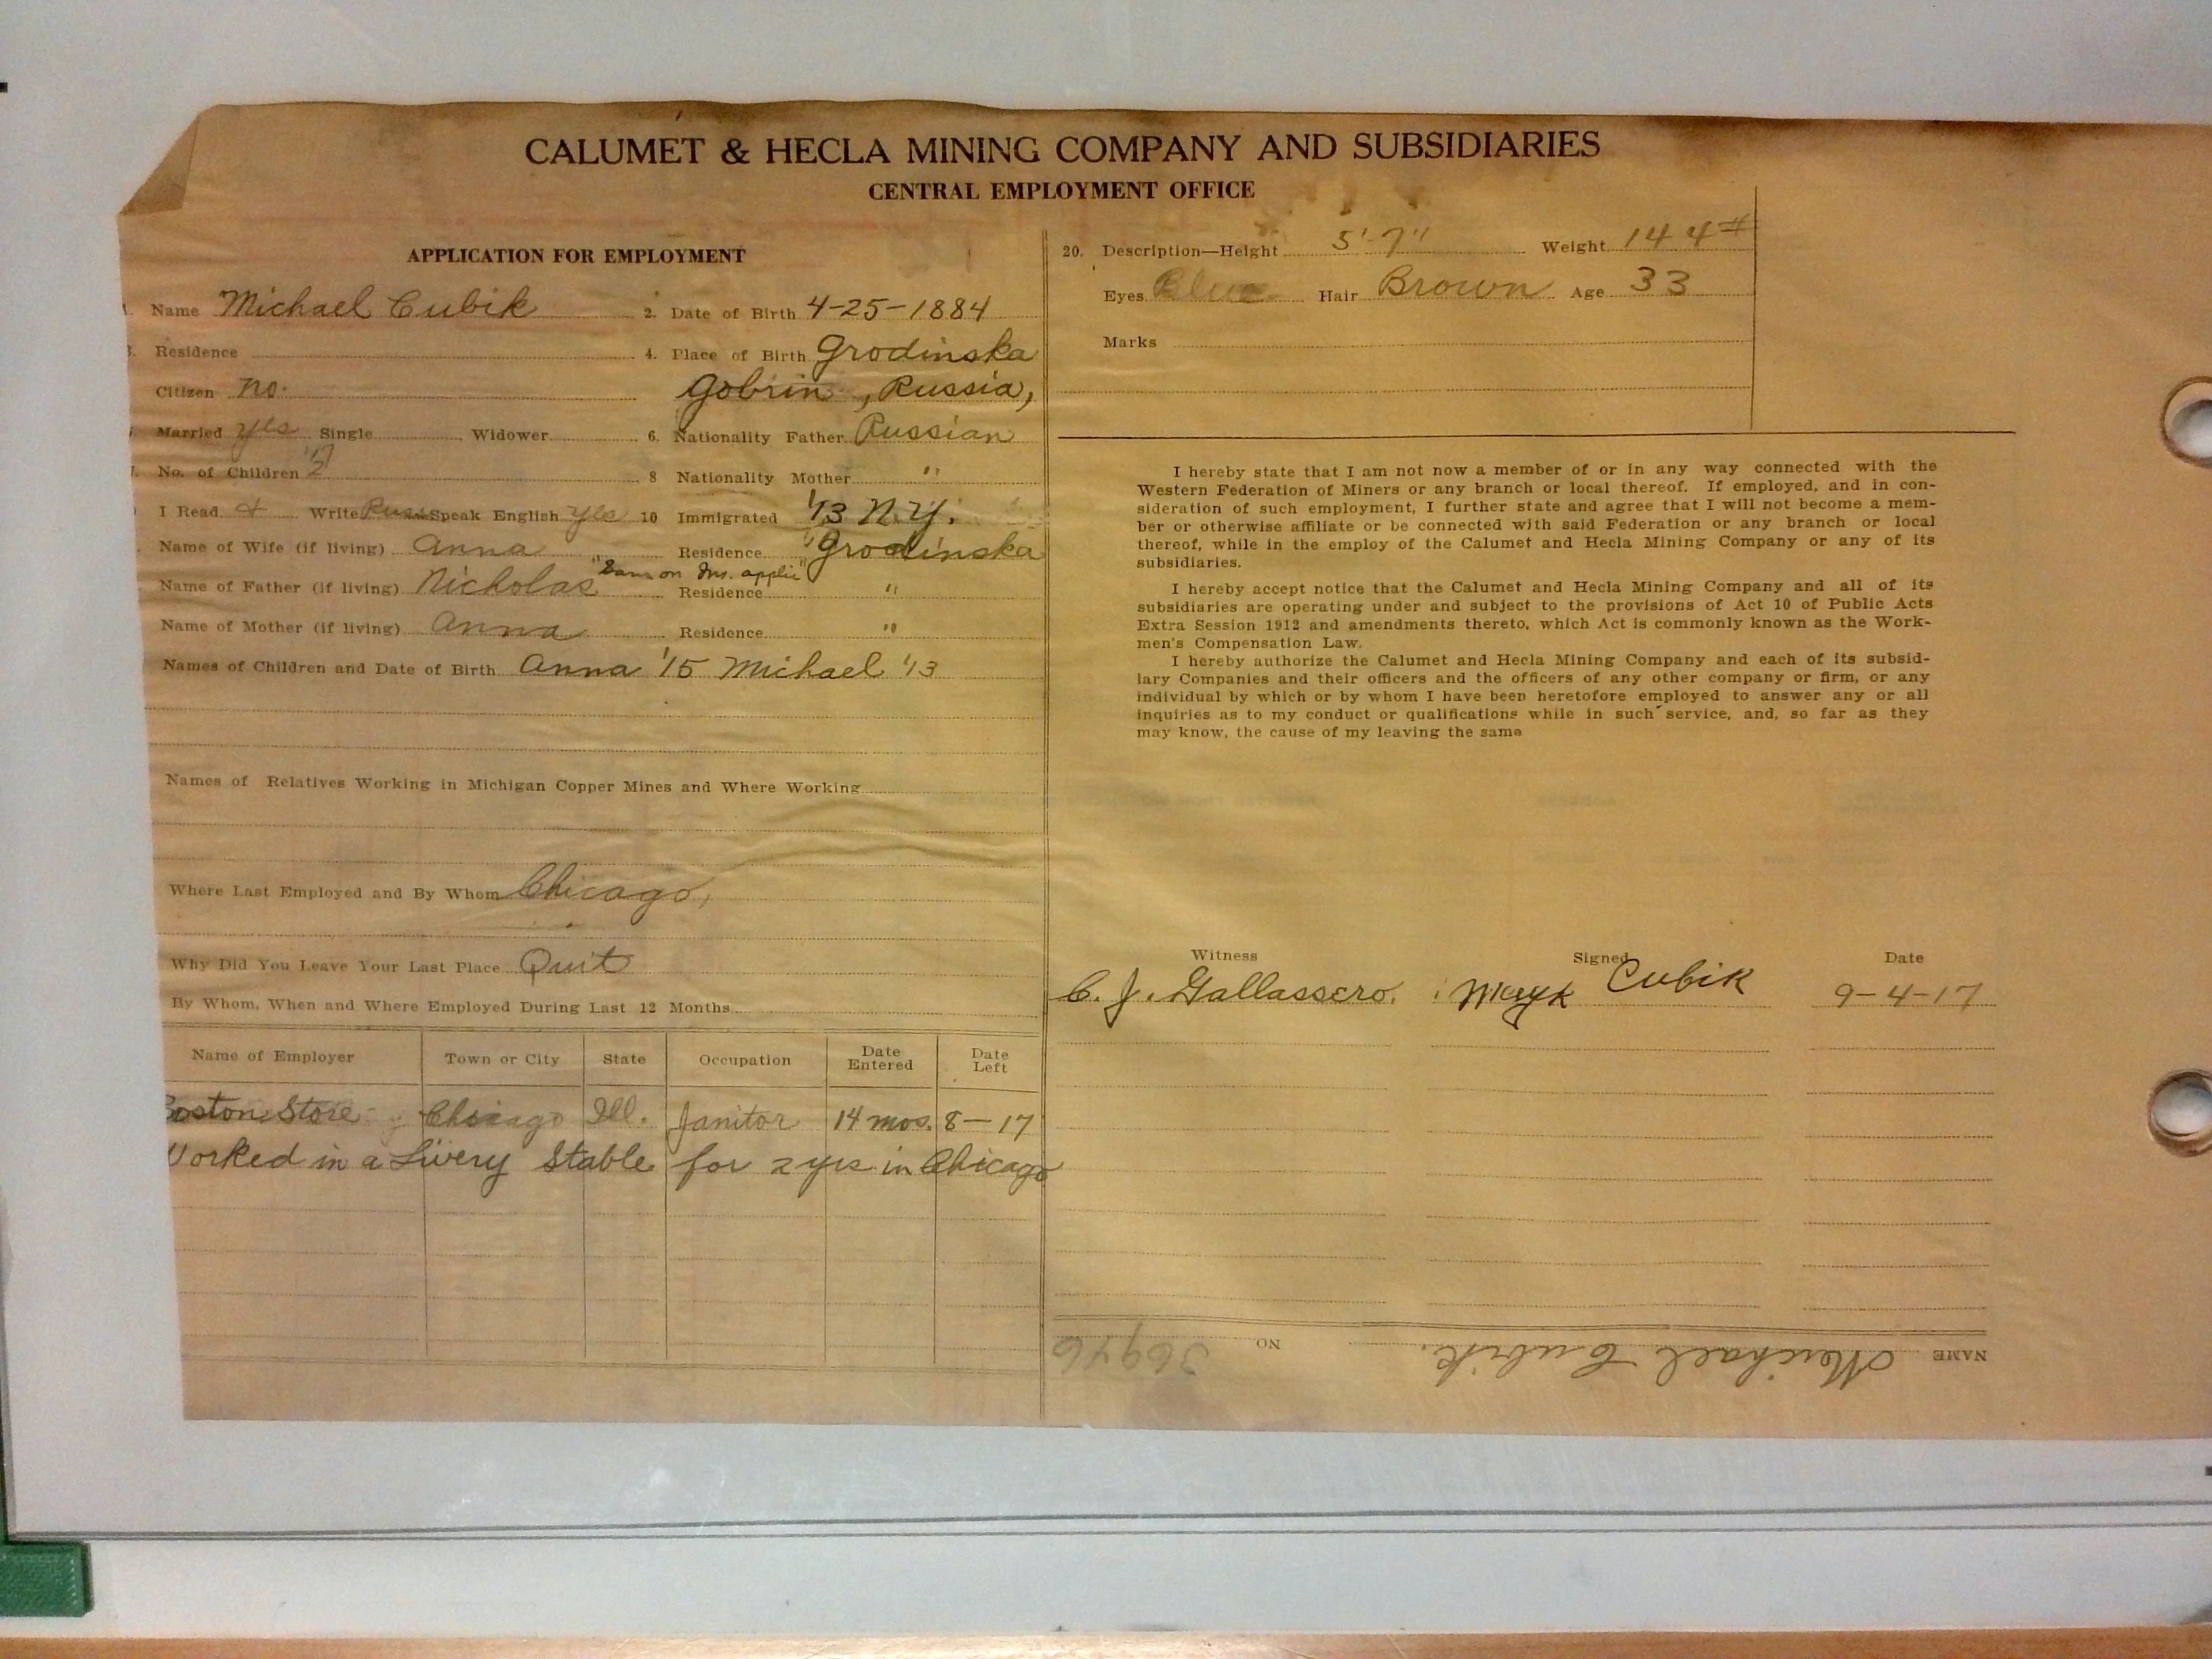 CALUMET & HECLA MINING COMPANY AND SUBSIDIARIES
CENTRAL EMPLOYMENT OFFICE
APPLICATION FOR EMPLOYMENT
Name Michael Cubik 2. Date of Birth 4-25-1884
3. Residence 4. Place of Birth Grodinska
Citizen no. Gobrin, Russia,
Married yes Single Widower 6. Nationality Father Russian
No. of Children 2 8 Nationality Mother "
I Read & Write Russ Speak English yes 10 Immigrated '13 N.Y.
Name of Wife (if living) Anna Residence Grodinska
"Sam on Ins. applic"
Name of Father (if living) Nicholas Residence "
Name of Mother (if living) Anna Residence "
Names of Children and Date of Birth Anna '15 Michael '13
Names of Relatives Working in Michigan Copper Mines and Where Working
Where Last Employed and By Whom Chicago,
Why Did You Leave Your Last Place Quit
By Whom, When and Where Employed During Last 12 Months
Name of Employer Town or City State Occupation Date Entered Date Left
Boston Store Chicago Ill. Janitor 14 mos. 8-17
Worked in a Livery Stable for 2 yrs in Chicago
20. Description—Height 5'-7" Weight 144#
Eyes Blue Hair Brown Age 33
Marks
I hereby state that I am not now a member of or in any way connected with the
Western Federation of Miners or any branch or local thereof. If employed, and in con-
sideration of such employment, I further state and agree that I will not become a mem-
ber or otherwise affiliate or be connected with said Federation or any branch or local
thereof, while in the employ of the Calumet and Hecla Mining Company or any of its
subsidiaries.
I hereby accept notice that the Calumet and Hecla Mining Company and all of its
subsidiaries are operating under and subject to the provisions of Act 10 of Public Acts
Extra Session 1912 and amendments thereto, which Act is commonly known as the Work-
men's Compensation Law.
I hereby authorize the Calumet and Hecla Mining Company and each of its subsid-
iary Companies and their officers and the officers of any other company or firm, or any
individual by which or by whom I have been heretofore employed to answer any or all
inquiries as to my conduct or qualifications while in such service, and, so far as they
may know, the cause of my leaving the same
Witness Signed Date
C. J. Gallassero. Cubik 9-4-17
NAME Michael Cubik. NO